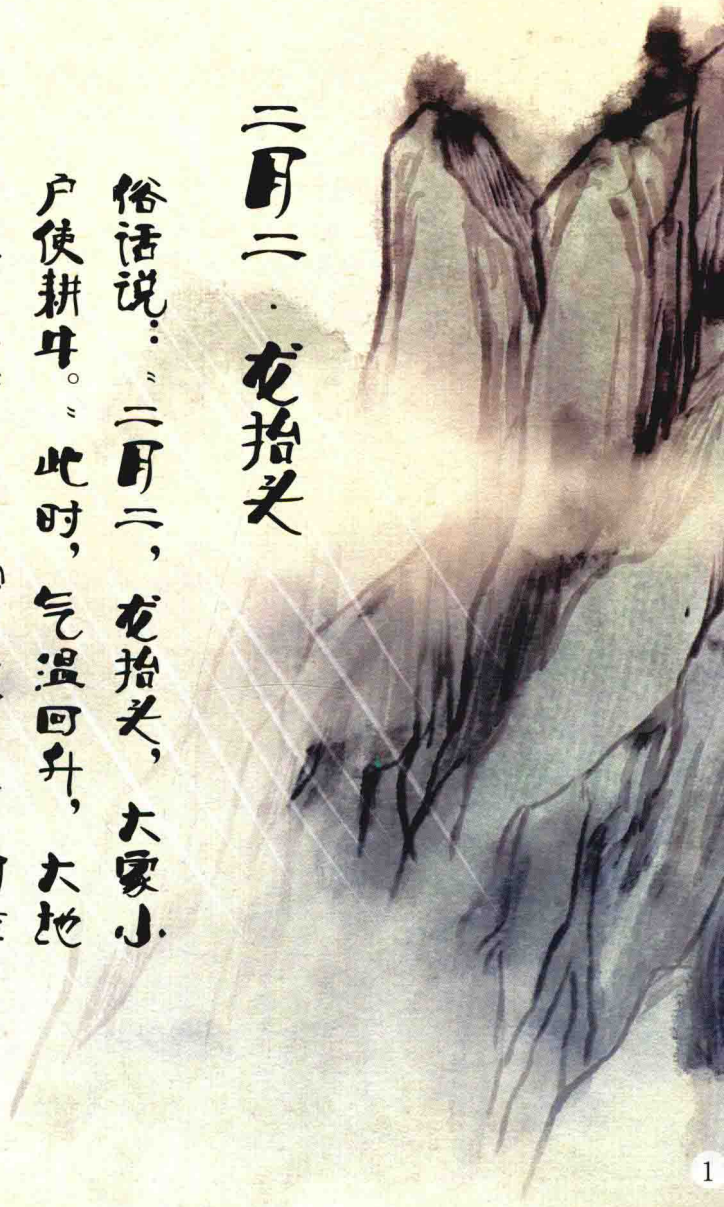 二月二·龙抬头
俗话说：“二月二，龙抬头，大家小
户使耕牛。”此时，气温回升，大地
1